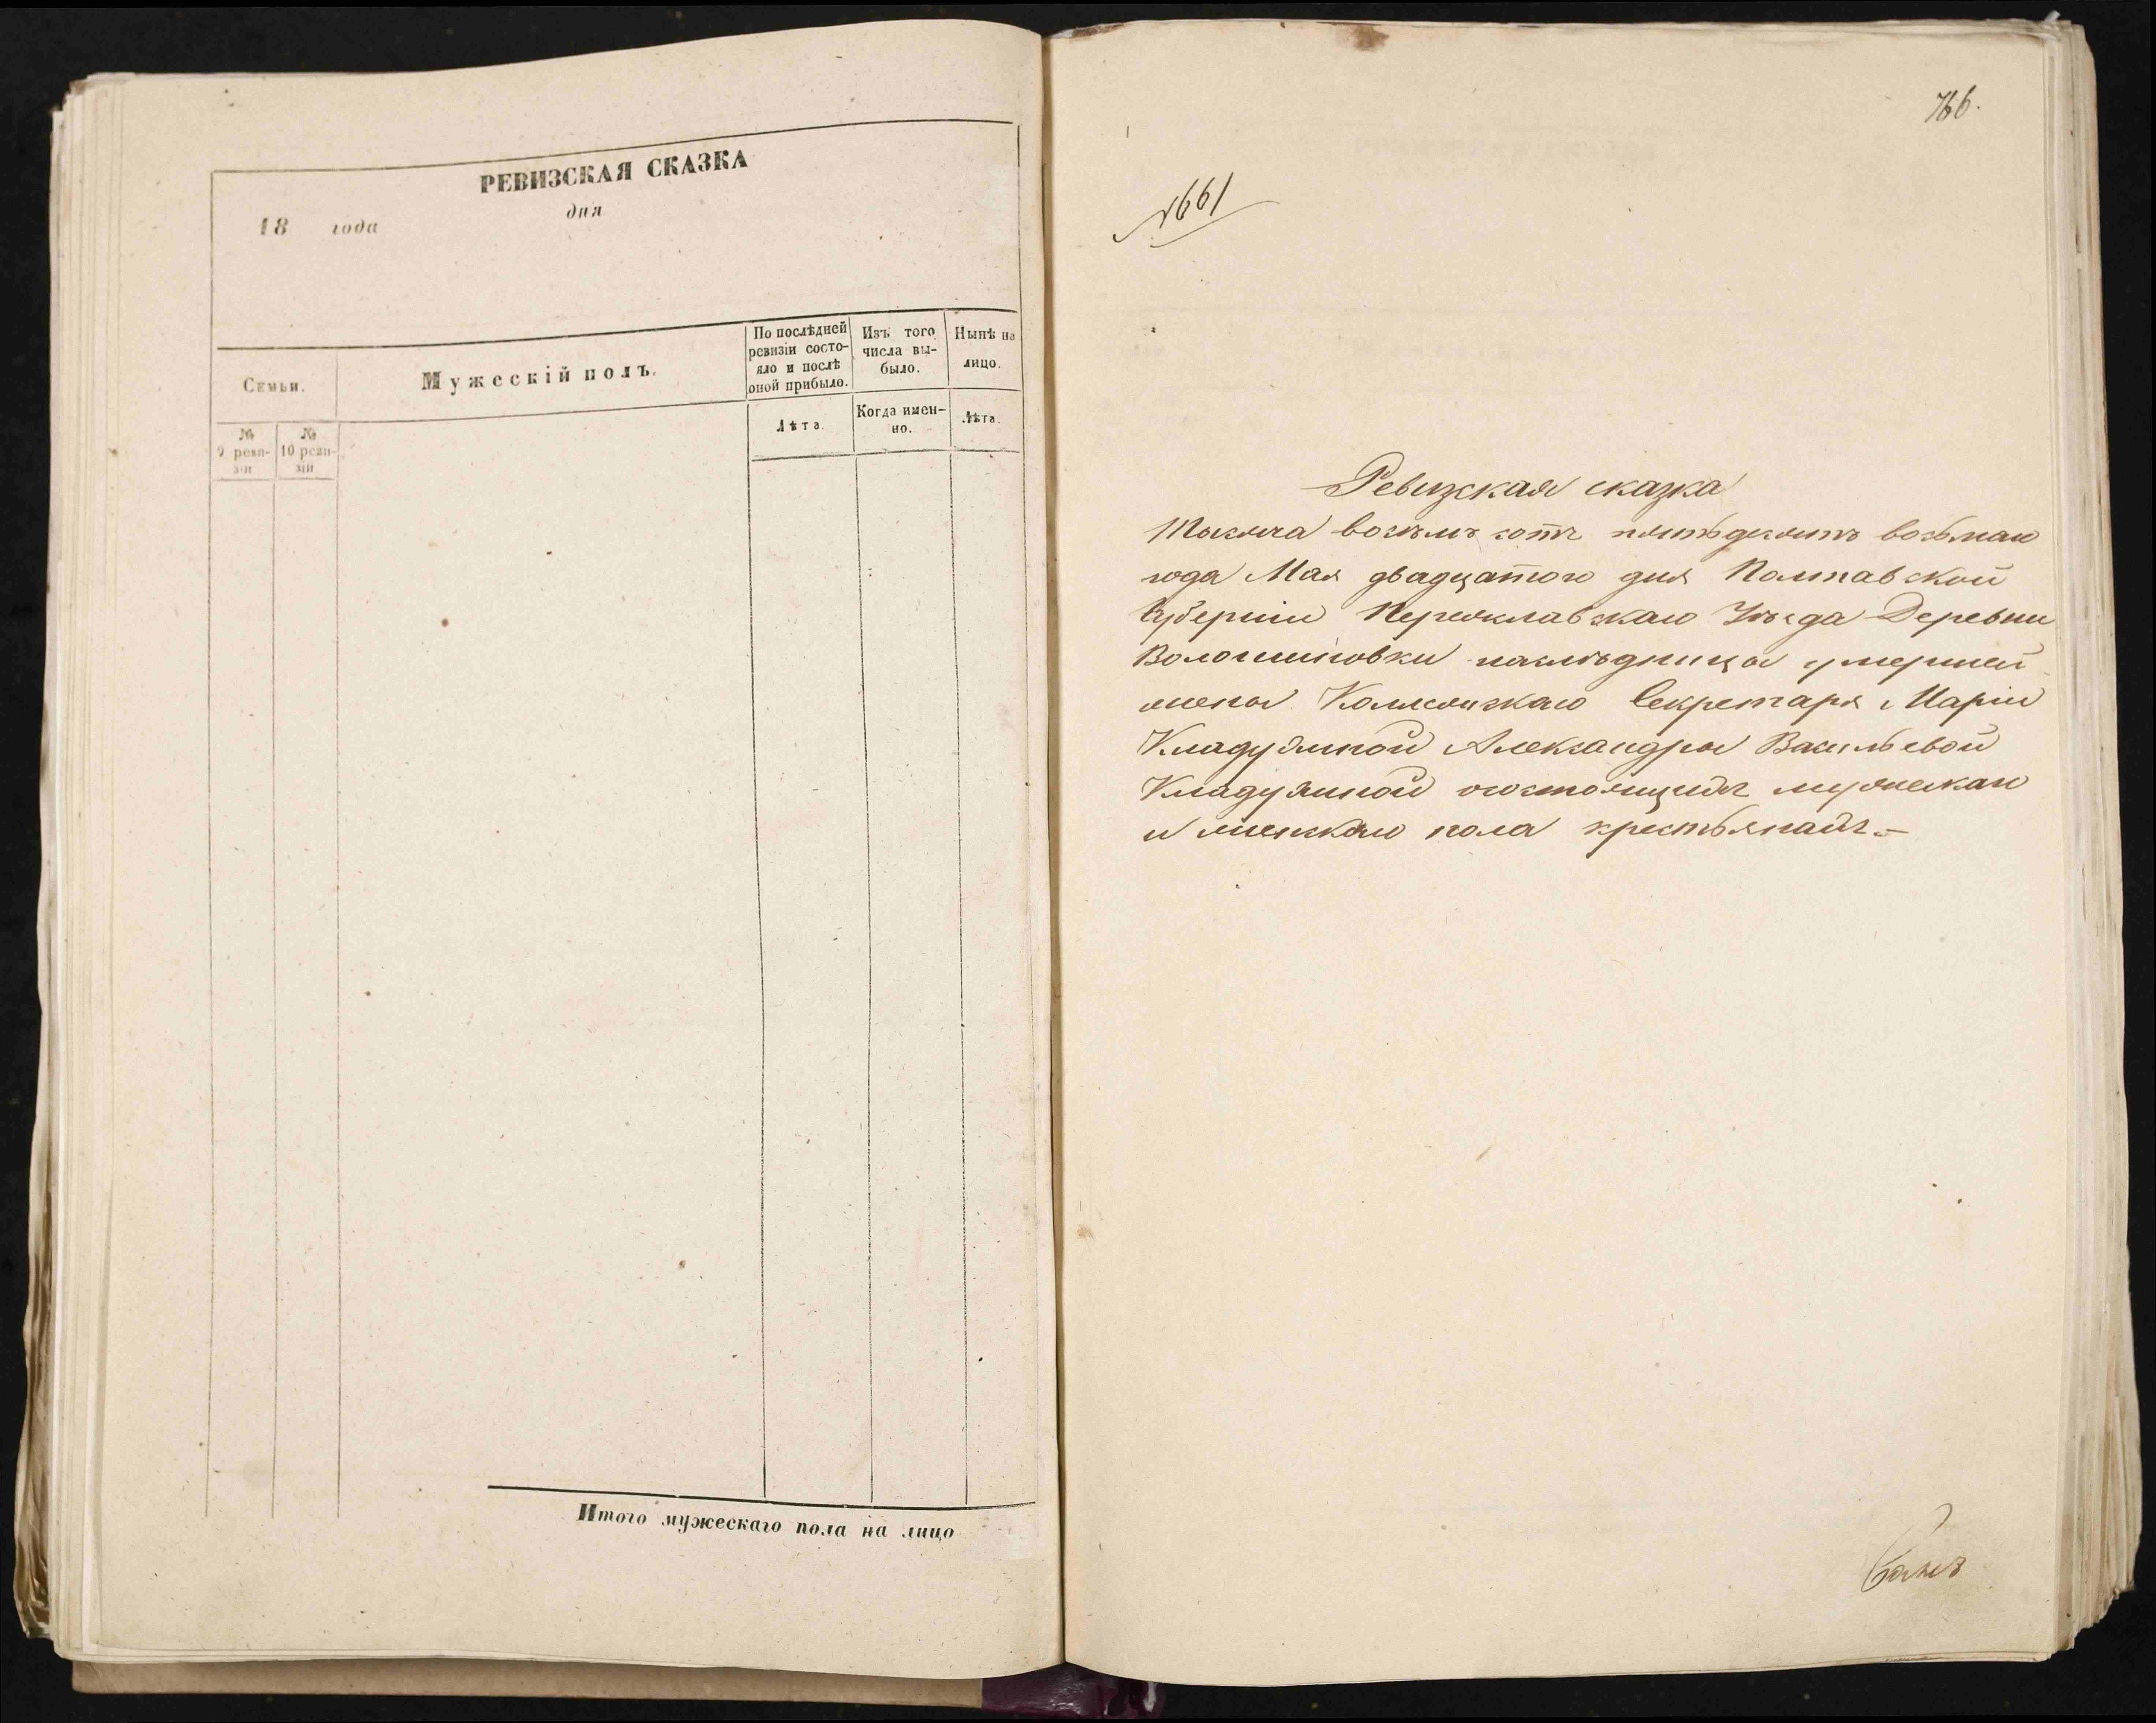 РЕВИЗСКАЯ СКАЗКА
18 года дня
Семьи.
Мужескій полъ.
По послѣдней ревизіи состояло и послѣ оной прибыло.
Изъ того числа выбыло.
Нынѣ на лицо.
№ 9 ревизіи
№ 10 ревизіи
Лѣта.
Когда именно.
Лѣта.
Итого мужескаго пола на лицо
766.
№661
Ревизская сказка
Тысяча восемь сотъ пятьдесятъ восьмаго
года Мая двадцатого дня Полтавской
Губерніи Переяславскаго Уѣзда Деревни
Волошиновки наслѣдницы умершей
жены Коллежскаго Секретаря Маріи
Александры Васильевой
состоящихъ мужескаго
и женскаго пола крестьянахъ.-